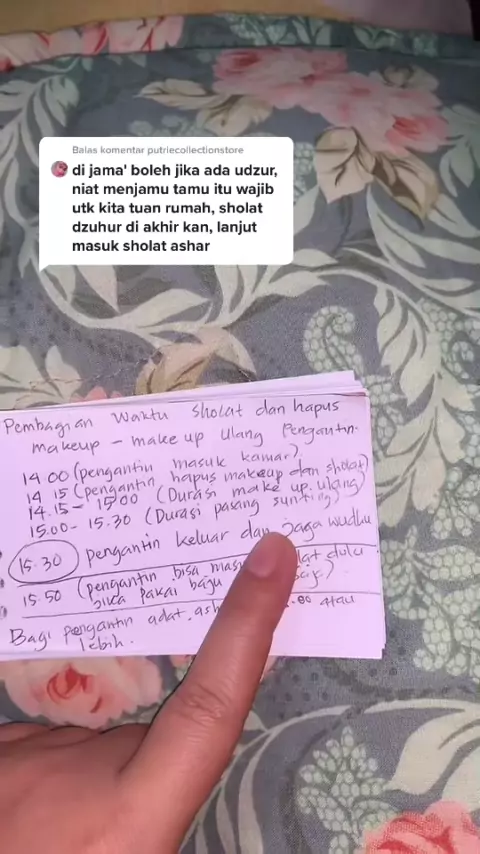 Balas komentar putriecollectionstore
di jama' boleh jika ada udzur,
niat menjamu tamu itu wajib
utk kita tuan rumah, sholat
dzuhur di akhir kan, lanjut
masuk sholat ashar
Pembagian waktu sholat dan hapus
makeup - make up ulang Pengantin.
14.00 (pengantin masuk kamar)
14.15 (pengantin hapus makeup dan sholat)
14.15 - 15.00 (Durasi make up ulang)
15.00 - 15.30 (Durasi pasang sunting)
15.30 pengantin keluar dan jaga wudhu
15.50 (pengantin bisa dulu
buka pakai baju
Bagi pengantin adat atau
lebih.